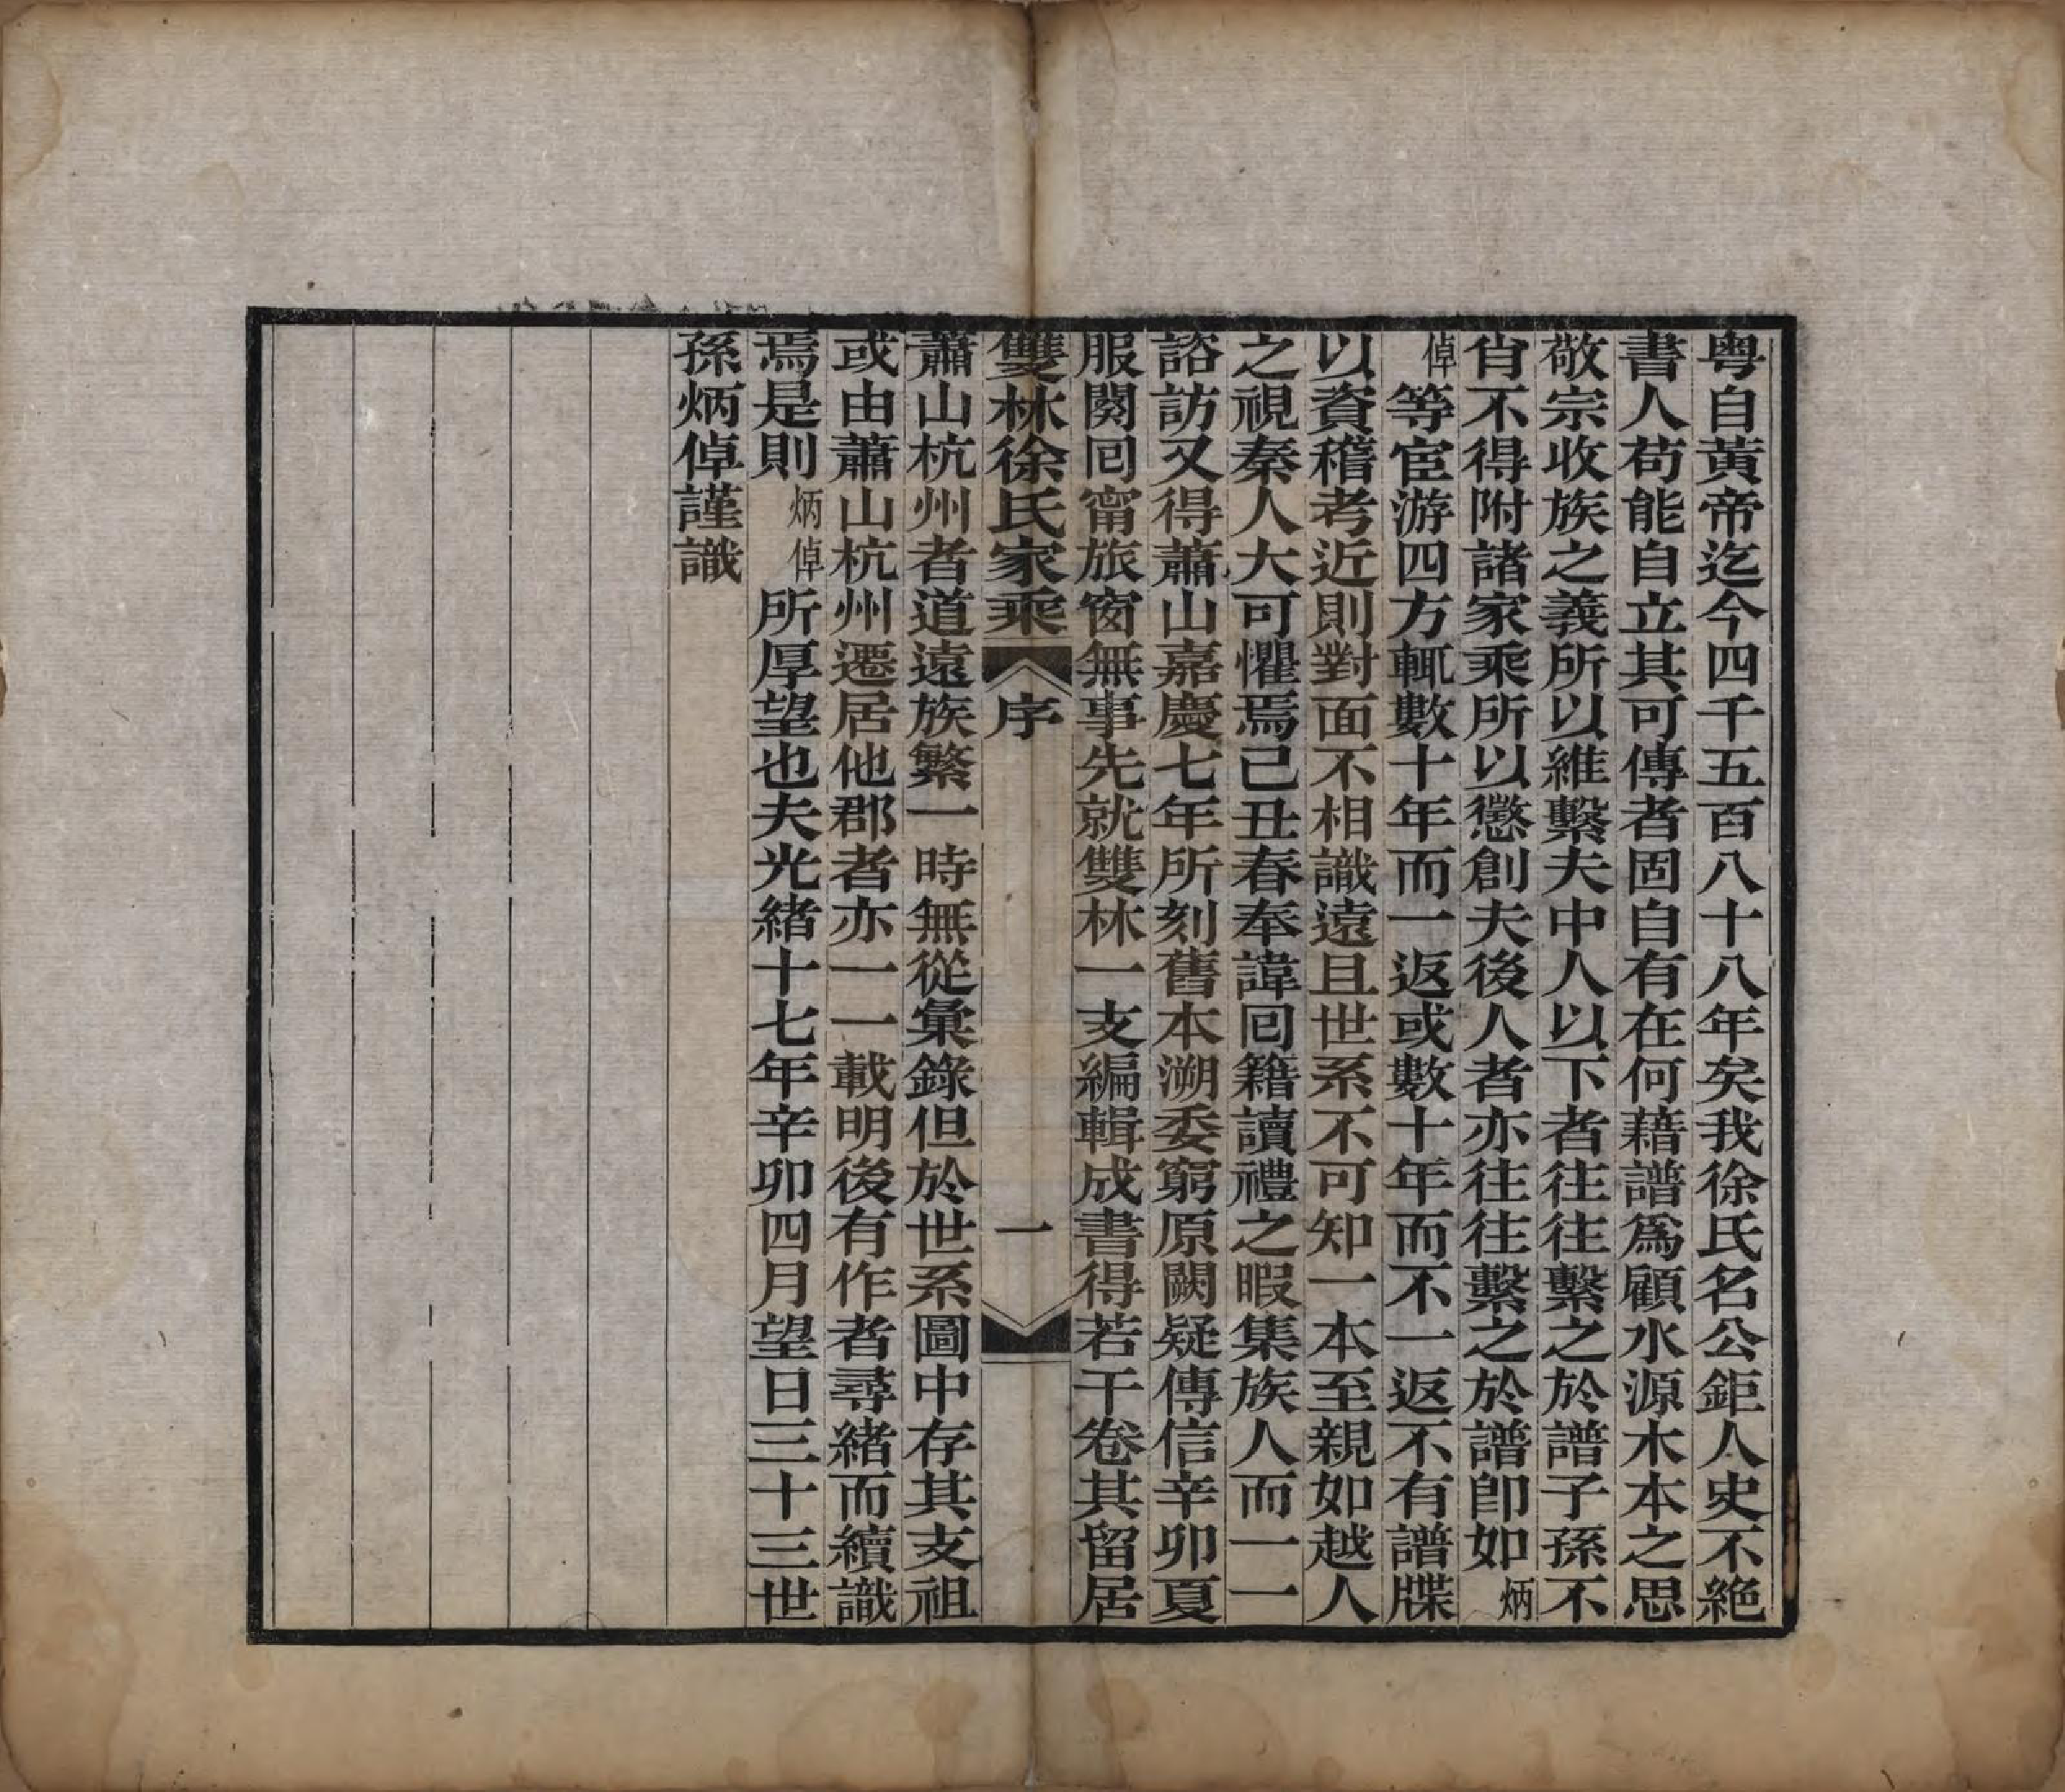 粤自黃帝迄今四千五百八十八年矣我徐氏名公鉅人史不絕
書人苟能自立其可傳者固自有在何藉譜爲顧水源木本之思
敬宗收族之義所以維繫夫中人以下者往往繫之於譜子孫不
肖不得附諸家乘所以懲創夫後人者亦往往繫之於譜卽如炳
倬等宦游四方輒數十年而一返或數十年而不一返不有譜牒
以資稽考近則對面不相識遠且世系不可知一本至親如越人
之視秦人大可懼焉己丑春奉諱囘籍讀禮之暇集族人而一一
諮訪又得蕭山嘉慶七年所刻舊本溯委窮原闕疑傳信辛卯夏
服闋囘甯旅窗無事先就雙林一支編輯成書得若干卷其留居
雙林徐氏家乘 序 一
蕭山杭州者道遠族繁一時無從彙錄但於世系圖中存其支祖
或由蕭山杭州遷居他郡者亦一一載明後有作者尋緒而續識
焉是則炳倬所厚望也夫光緒十七年辛卯四月望日三十三世
孫炳倬謹識